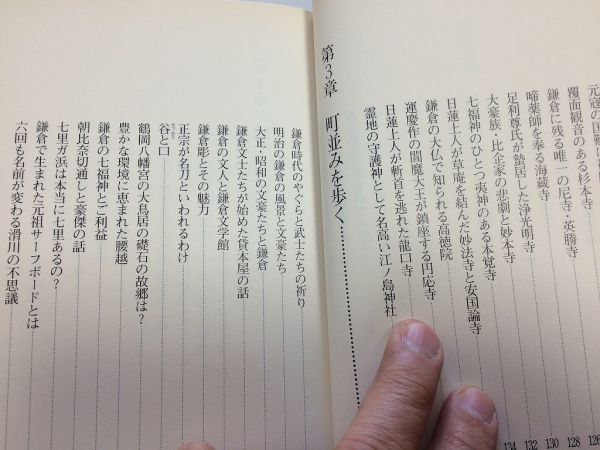 元寇の国難に
覆面観音のある杉本寺
鎌倉に残る唯一の尼寺・英勝寺
啼薬師を奉る海蔵寺
足利尊氏が蟄居した浄光明寺
大豪族・比企家の悲劇と妙本寺
七福神のひとつ夷神のある本覚寺
日蓮上人が草庵を結んだ妙法寺と安国論寺
鎌倉の大仏で知られる高徳院
運慶作の閻魔大王が鎮座する円応寺
日蓮上人が斬首を逃れた龍口寺
霊地の守護神として名高い江ノ島神社
126
128
130
132
134
第3章 町並みを歩く
鎌倉時代のやぐらと武士たちの祈り
明治の鎌倉の風景と文豪たち
大正・昭和の文豪たちと鎌倉
鎌倉文士たちが始めた貸本屋の話
鎌倉の文人と鎌倉文学館
鎌倉彫とその魅力
正宗が名刀といわれるわけ
谷と口
鶴岡八幡宮の大鳥居の礎石の故郷は?
豊かな環境に恵まれた腰越
鎌倉の七福神とご利益
朝比奈切通しと豪傑の話
七里が浜は本当に七里あるの?
鎌倉で生まれた元祖サーフボードとは
六回も名前が変わる滑川の不思議